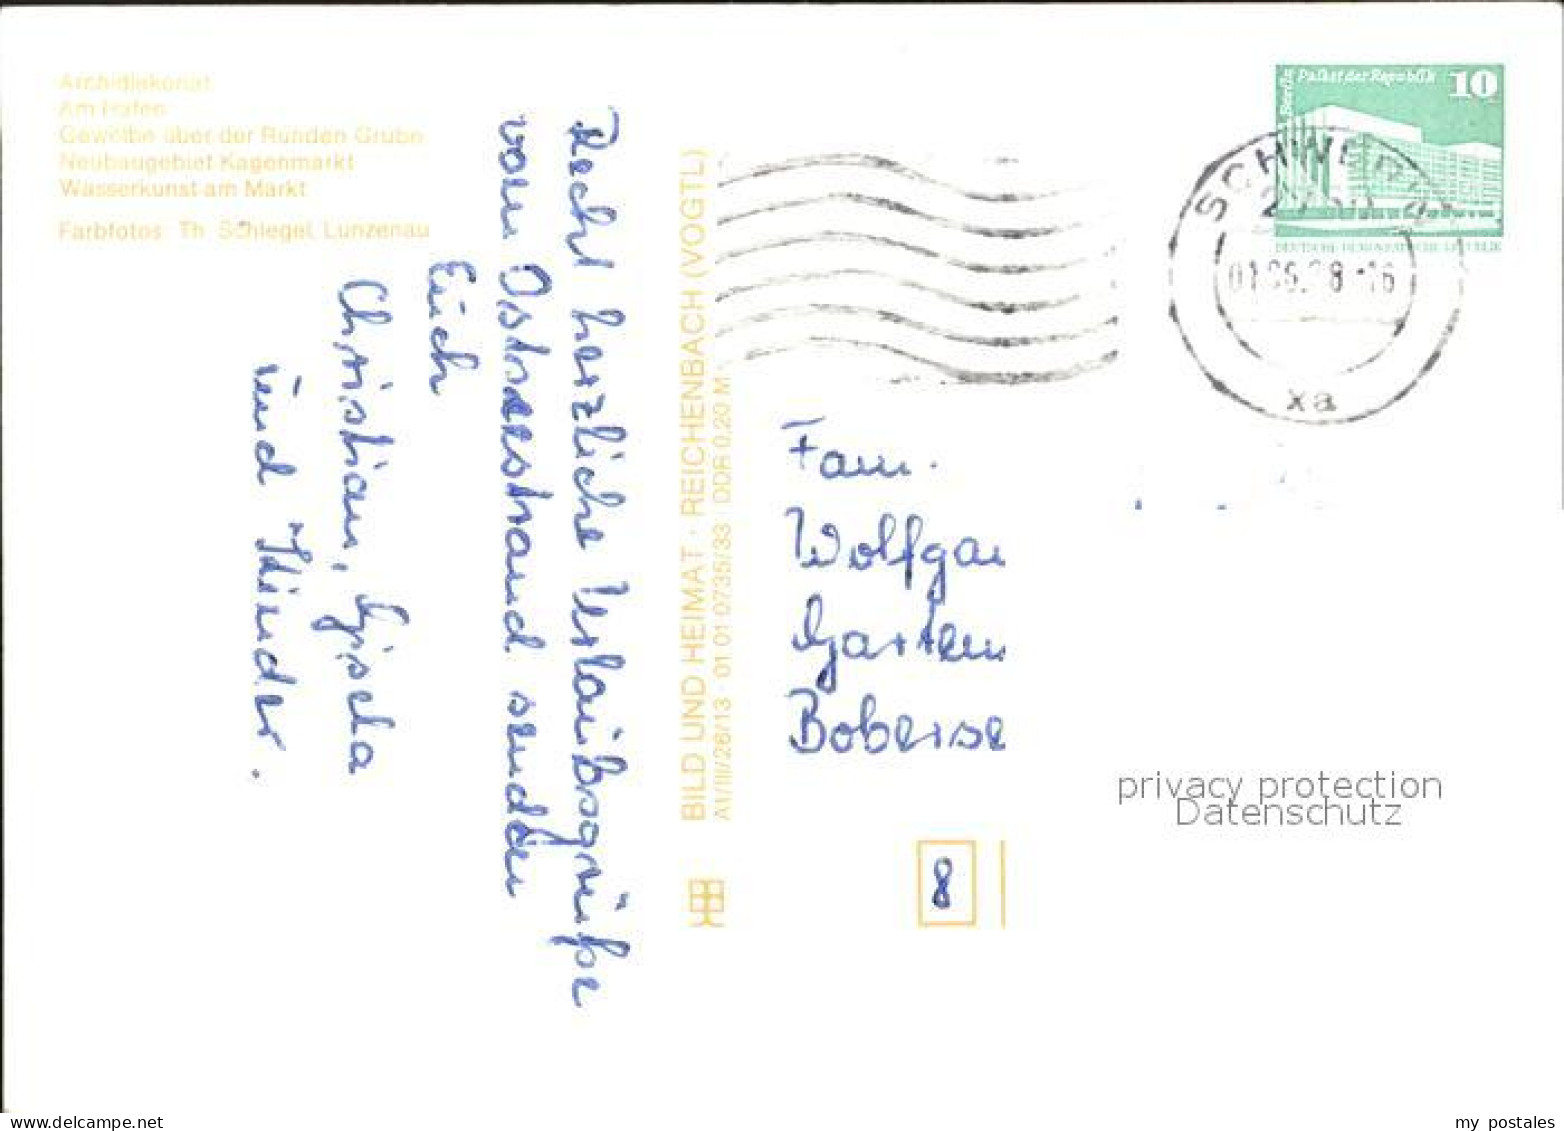 Archidiakonat
Am Hafen
Gewölbe über der Runden Grube
Neubaugebiet Kagenmarkt
Wasserkunst am Markt
Farbfotos: Th. Schlegel, Lunzenau
Recht herzliche Urlaubsgrüße
vom Ostseestrand senden
Euch
Christian, Gisela
und Kinder.
BILD UND HEIMAT · REICHENBACH (VOGTL)
A1/III/26/13 · 01 01 0735/33 · DDR 0,20 M
Berlin Palast der Republik 10
DEUTSCHE DEMOKRATISCHE REPUBLIK
SCHWERIN
xa
Fam.
Wolfgan
Garten
Boberse
8
privacy protection
Datenschutz
www.delcampe.net
my_postales